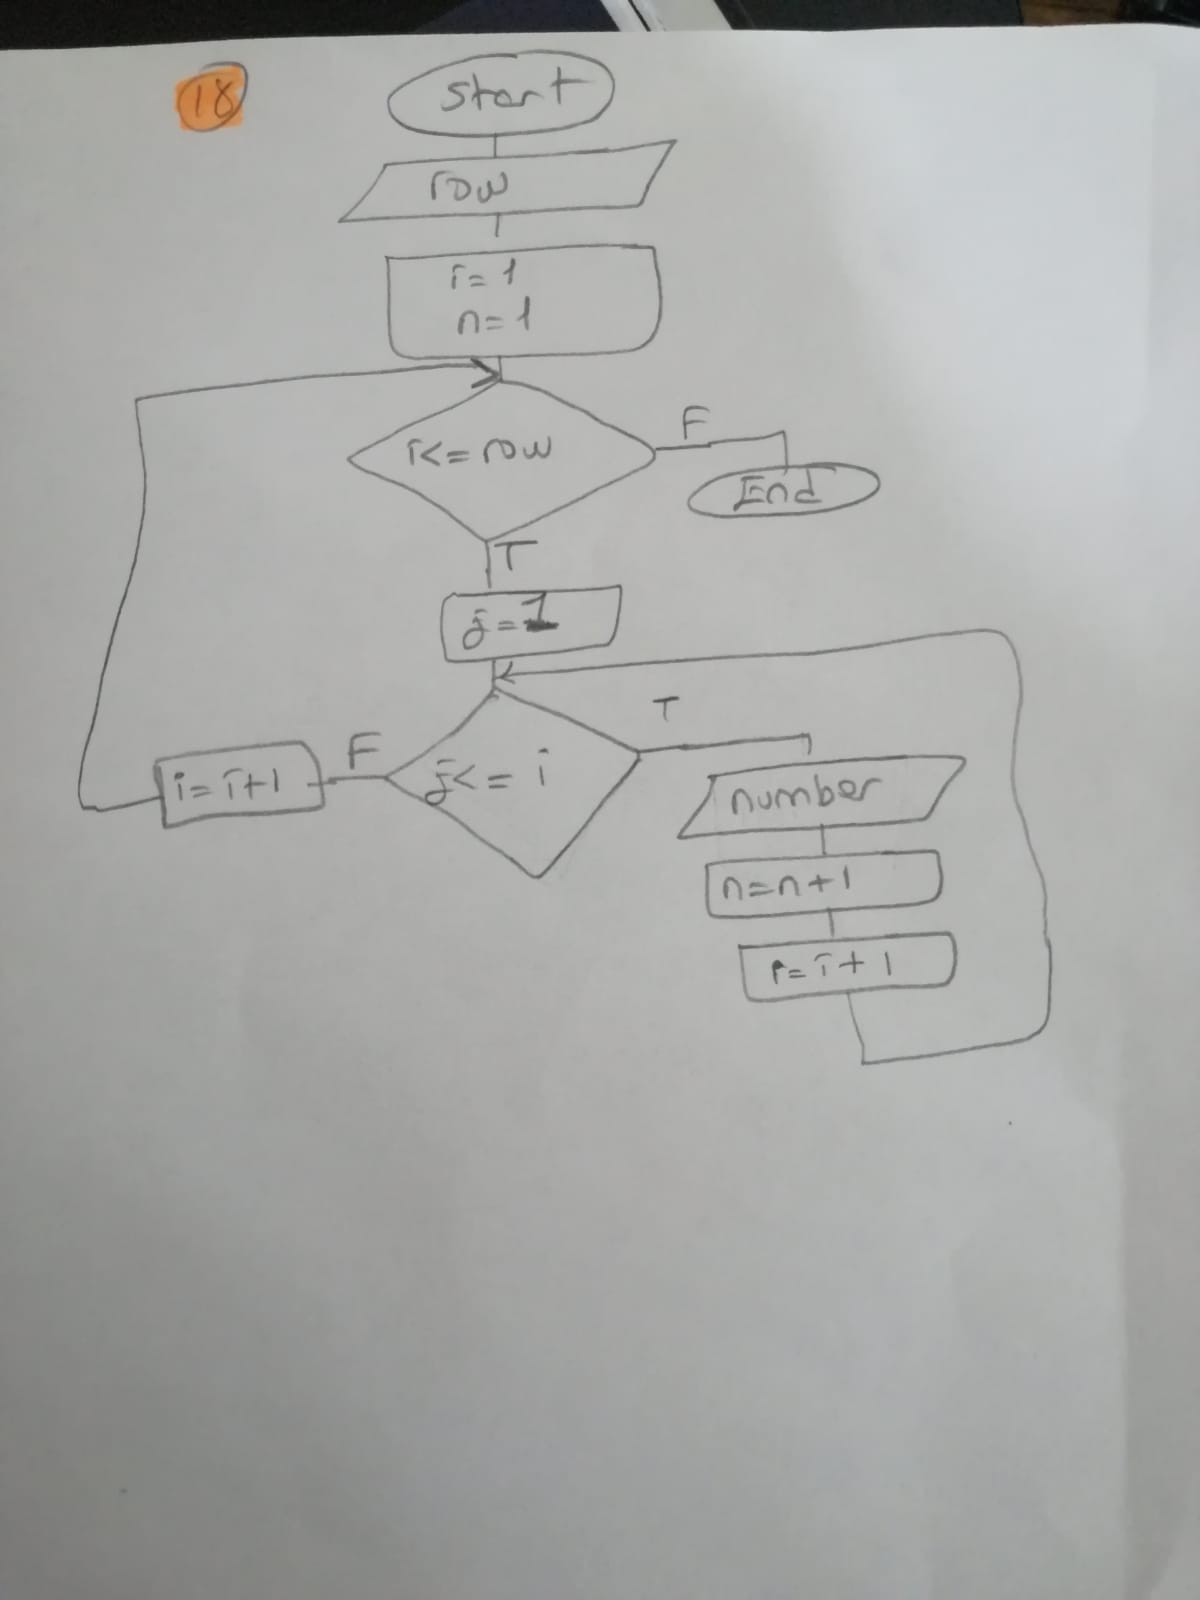 18
Start
row
i=1
n=1
i<=row
F
End
T
j=1
T
j<= i
F
i=i+1
number
n=n+1
i=i+1